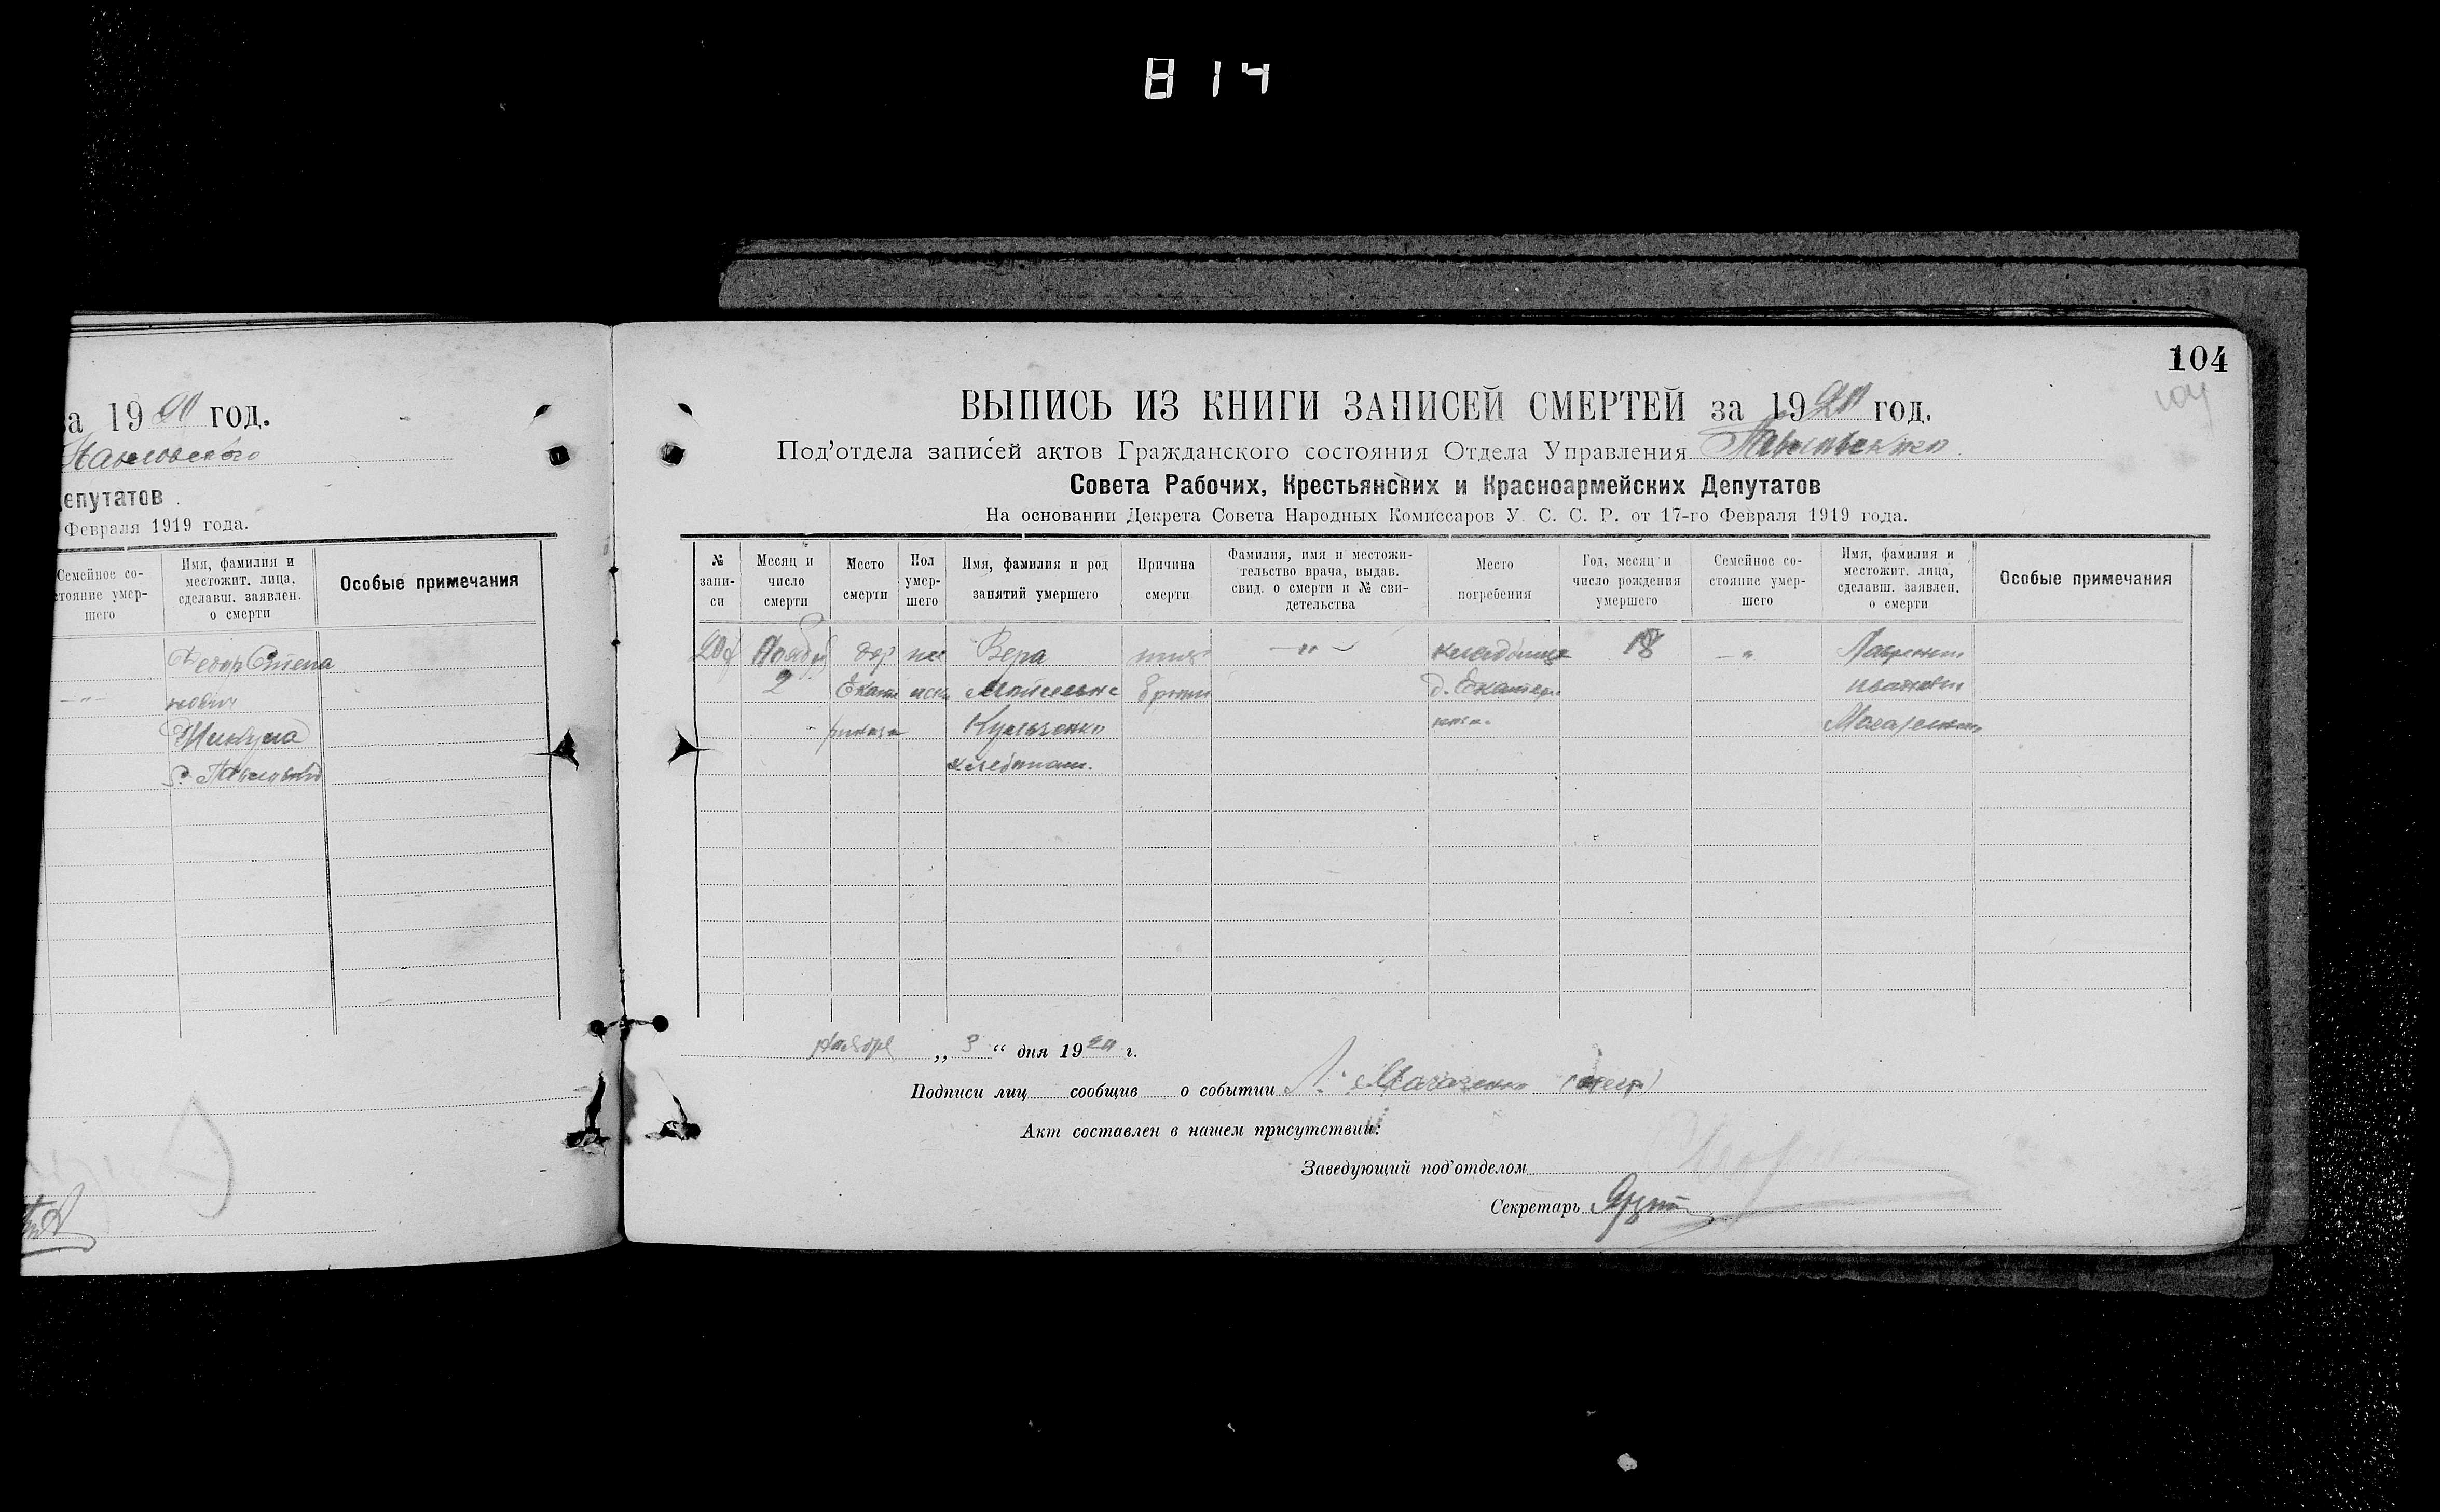 814
за 1920 год.
Павловского
депутатов
Февраля 1919 года.
Семейное со-
стояние умер-
шего
Имя, фамилия и
местожит. лица,
сделавш. заявлен.
о смерти
Особые примечания
Федор Степа
нович
с. Павловка
104
104
ВЫПИСЬ ИЗ КНИГИ ЗАПИСЕЙ СМЕРТЕЙ за 1920 год.
Под'отдела записей актов Гражданского состояния Отдела Управления Павловского
Совета Рабочих, Крестьянских и Красноармейских Депутатов
На основании Декрета Совета Народных Комиссаров У. С. С. Р. от 17-го Февраля 1919 года.
№
запи-
си
Месяц и
число
смерти
Место
смерти
Пол
умер-
шего
Имя, фамилия и род
занятий умершего
Причина
смерти
Фамилия, имя и местожи-
тельство врача, выдав.
свид. о смерти и № сви-
детельства
Место
погребения
Год, месяц и
число рождения
умершего
Семейное со-
стояние умер-
шего
Имя, фамилия и
местожит. лица,
сделавш. заявлен.
о смерти
Особые примечания
Ноября
2
дер
Екате
жен
Вера
кладбище
д. Екатер
18
Лаврентий
Иванович
ноября „ 3 “ дня 1920 г.
Подписи лиц сообщив о событии Л.
Акт составлен в нашем присутствии:
Заведующий под'отделом
Секретарь